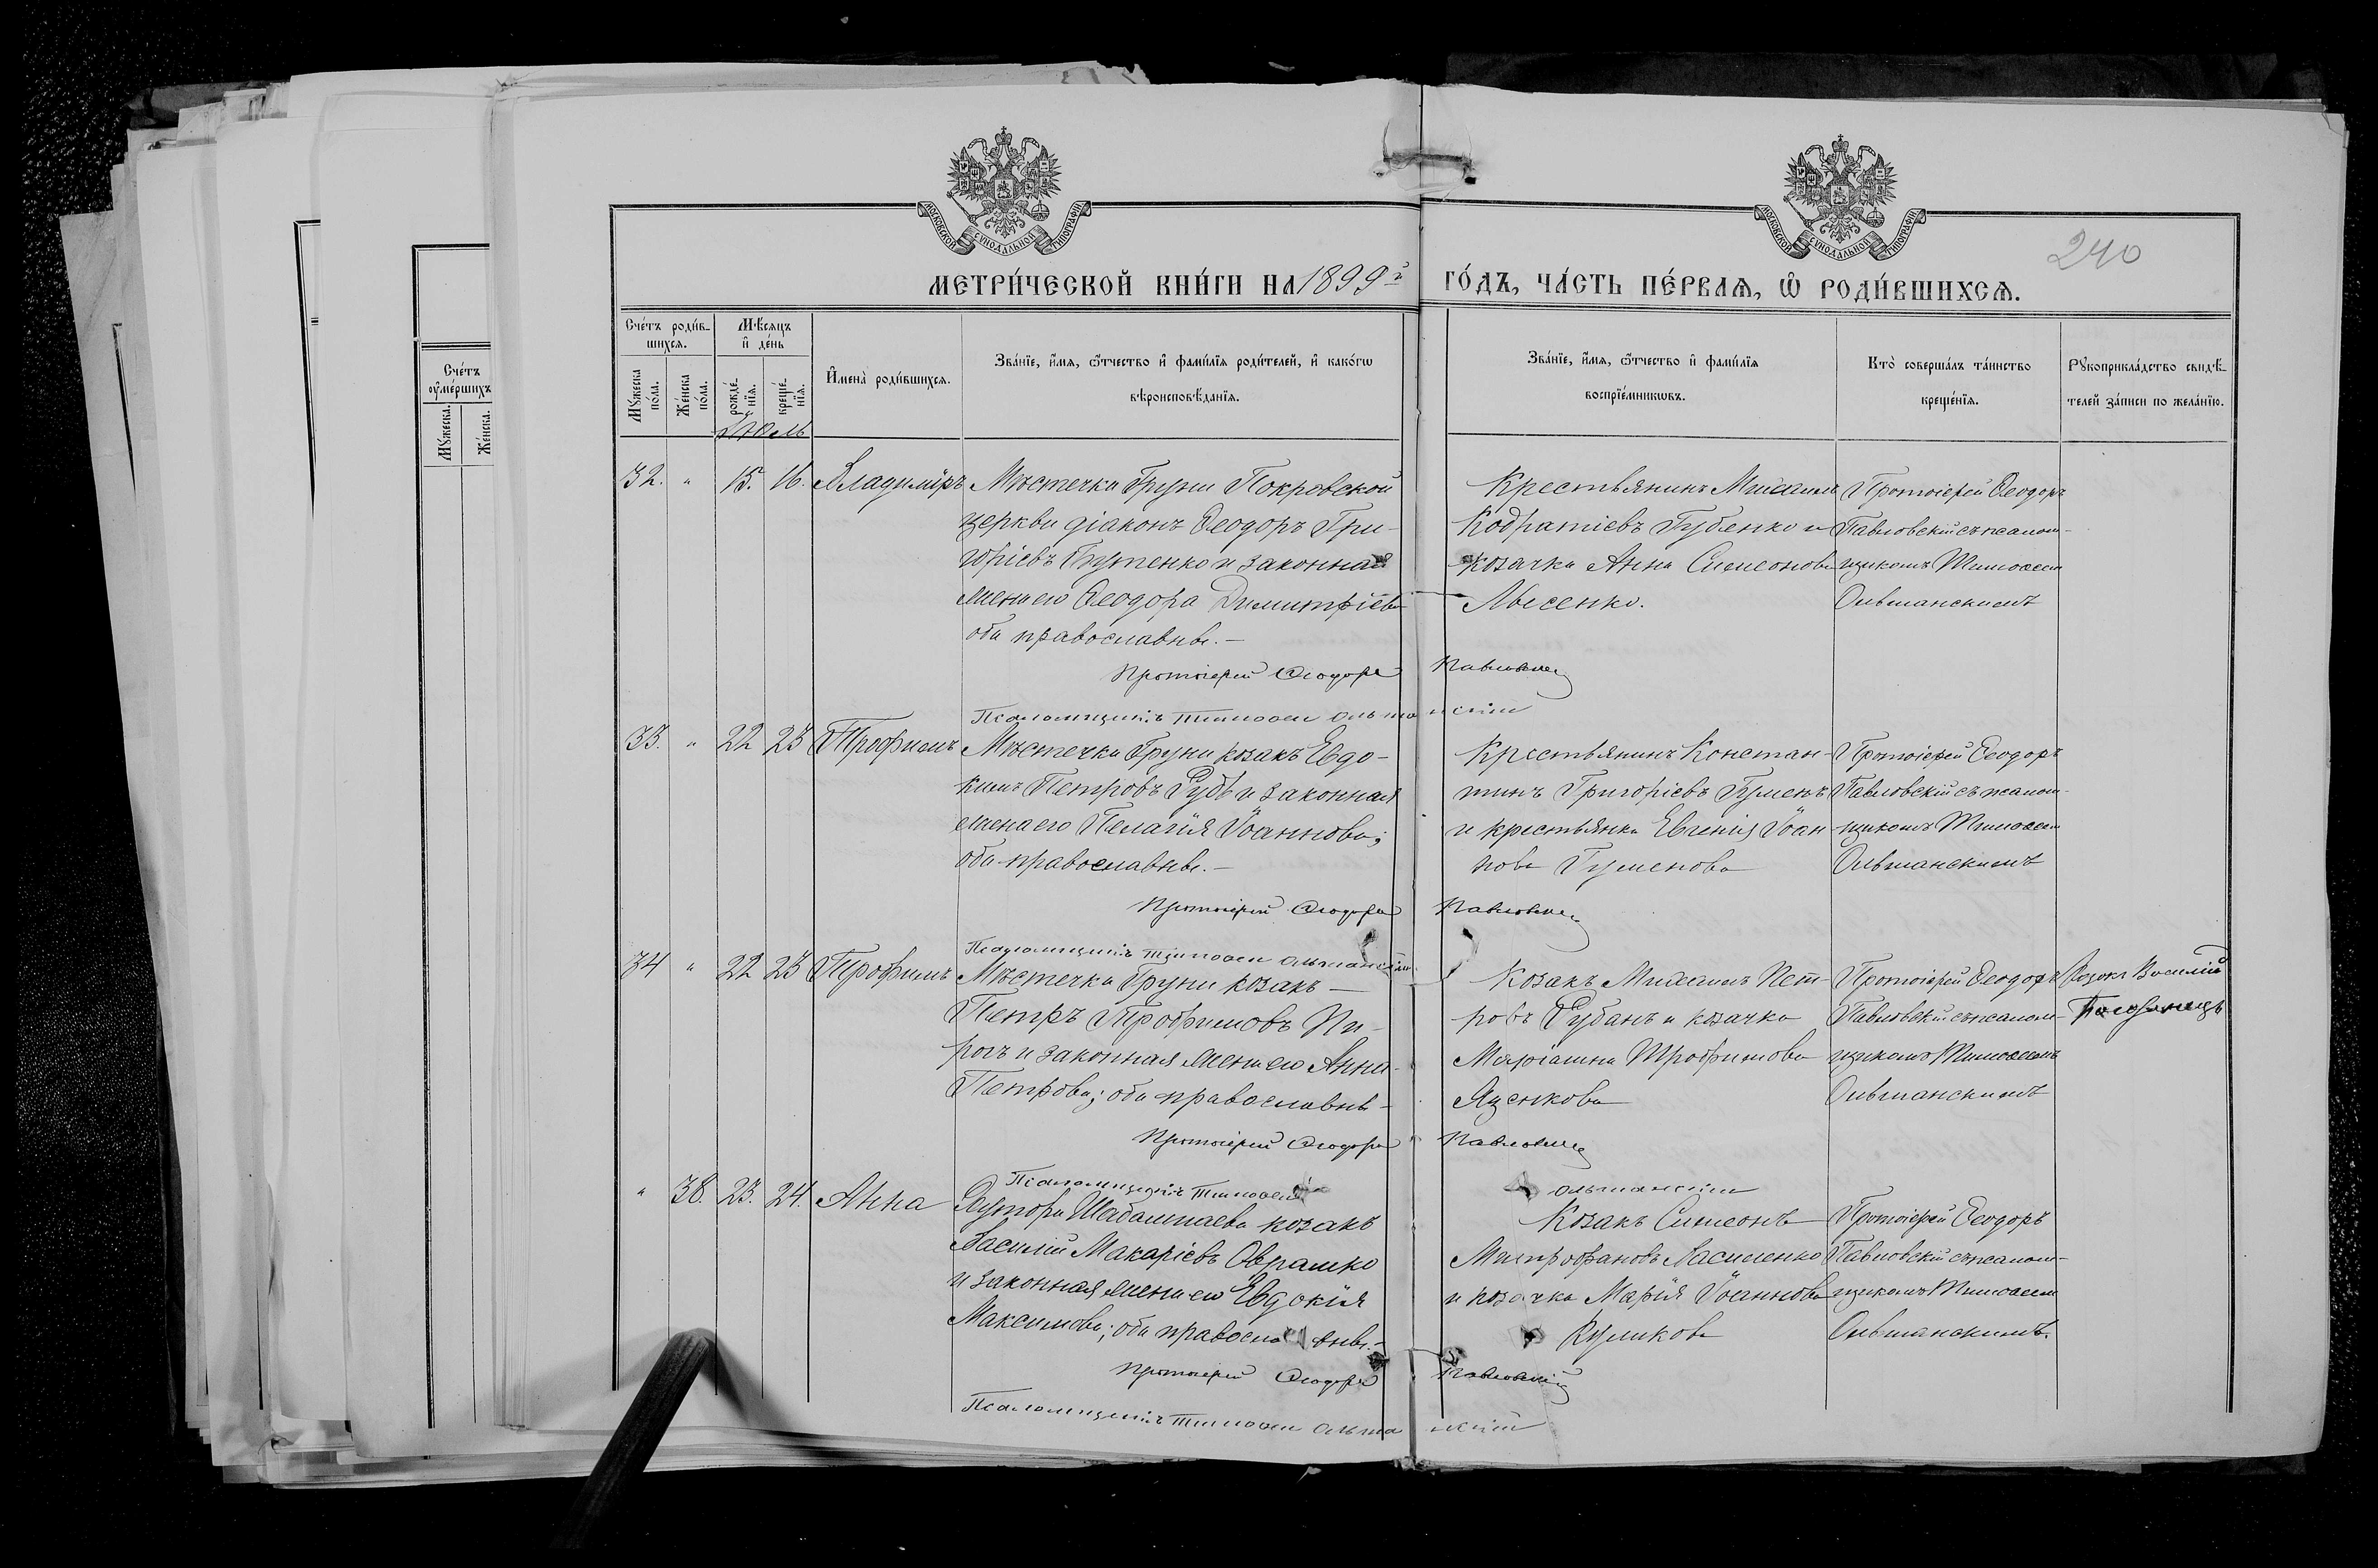 МОСКОВСКОЙ СУНОДАЛЬНОЙ ТИПОГРАФИИ
МОСКОВСКОЙ СУНОДАЛЬНОЙ ТИПОГРАФИИ
240
МЕТРИ́ЧЕСКОЙ КНИ́ГИ НА 1899й ГО́ДЪ, ЧА́СТЬ ПЕ́РВАѦ, Ѡ РОДИ́ВШИХСѦ.
Сче́тъ роди́в-
шихсѧ.
Мѣ́сяцъ
и де́нь
Мꙋжеска по́ла.
Же́нска по́ла.
рожде́-
нїѧ.
креще́-
нїѧ.
Имена̀ роди́вшихсѧ.
Зва́нїе, и́мѧ, ѻ́тчество и фами́лїѧ роди́телей, и како́гѡ
вѣроисповѣ́данїѧ.
Зва́нїе, и́мѧ, ѻ́тчество и фами́лїѧ
воспрїе́мникѡвъ.
Кто̀ соверша́лъ та́инство
креще́нїѧ.
Рꙋкоприкла́дство свидѣ́-
телей за́писи по жела́нїю.
Сче́тъ
оуме́ршихъ
Мꙋжеска.
Же́нска.
Іюль
32. " 15. 16. Владиміръ
Мѣстечка Груни Покровской
церкви діаконъ Ѳеодоръ Гри-
горіевъ и законная
жена его Ѳеодора Димитріева
оба православные.-
Крестьянинъ Михаилъ
Кодратіевъ Губенко и
козачка Анна Симеонова
Лысенко.
Протоіерей Ѳеодоръ
Павловскій съ псалом-
щикомъ Тимоѳеем
Ольшанскимъ
Протоіерей Ѳеодоръ Павловскій
Псаломщикъ Тимоѳей Ольшанскій
33. " 22 23 Трофимъ
Мѣстечка Груни козакъ Евдо-
кимъ Петровъ и законная
жена его Пелагія Іоаннова;
оба православные.-
Крестьянинъ Констан-
тинъ Григорьевъ
и крестьянка Евгенія Іоан-
нова Гуменова
Протоіерей Ѳеодоръ
Павловскій съ псалом-
щикомъ Тимоѳеем
Ольшанскимъ
Протоіерей Ѳеодоръ Павловскій
Псаломщикъ Тимоѳей Ольшанскій
34 " 22 23 Трофимъ
Мѣстечка Груни козакъ —
Петръ Трофимовъ Пи-
рогъ и законная жена его Анна
Петрова; оба православны -
Козакъ Михаилъ Пет-
ровъ Рубанъ и козачка
Маріамна Трофимова
Яценкова
Протоіерей Ѳеодоръ
Павловскій съ псалом-
щикомъ Тимоѳеемъ
Ольшанскимъ
Козакъ Василій
Протоіерей Ѳеодоръ Павловскій
Псаломщикъ Тимоѳей Ольшанскій
" 38. 23. 24. Анна
Хутора козакъ
Василій Макаріевъ Оврашко
и законная жена его Евдокія
Максимова; оба православные.-
Козакъ Симеонъ
Митрофановъ Василенко
и козачка Марія Іоаннова
Куликова
Протоіерей Ѳеодоръ
Павловскій съ псалом-
щикомъ Тимоѳеем
Ольшанскимъ.
Протоіерей Ѳеодоръ Павловскій
Псаломщикъ Тимоѳей Ольшанскій